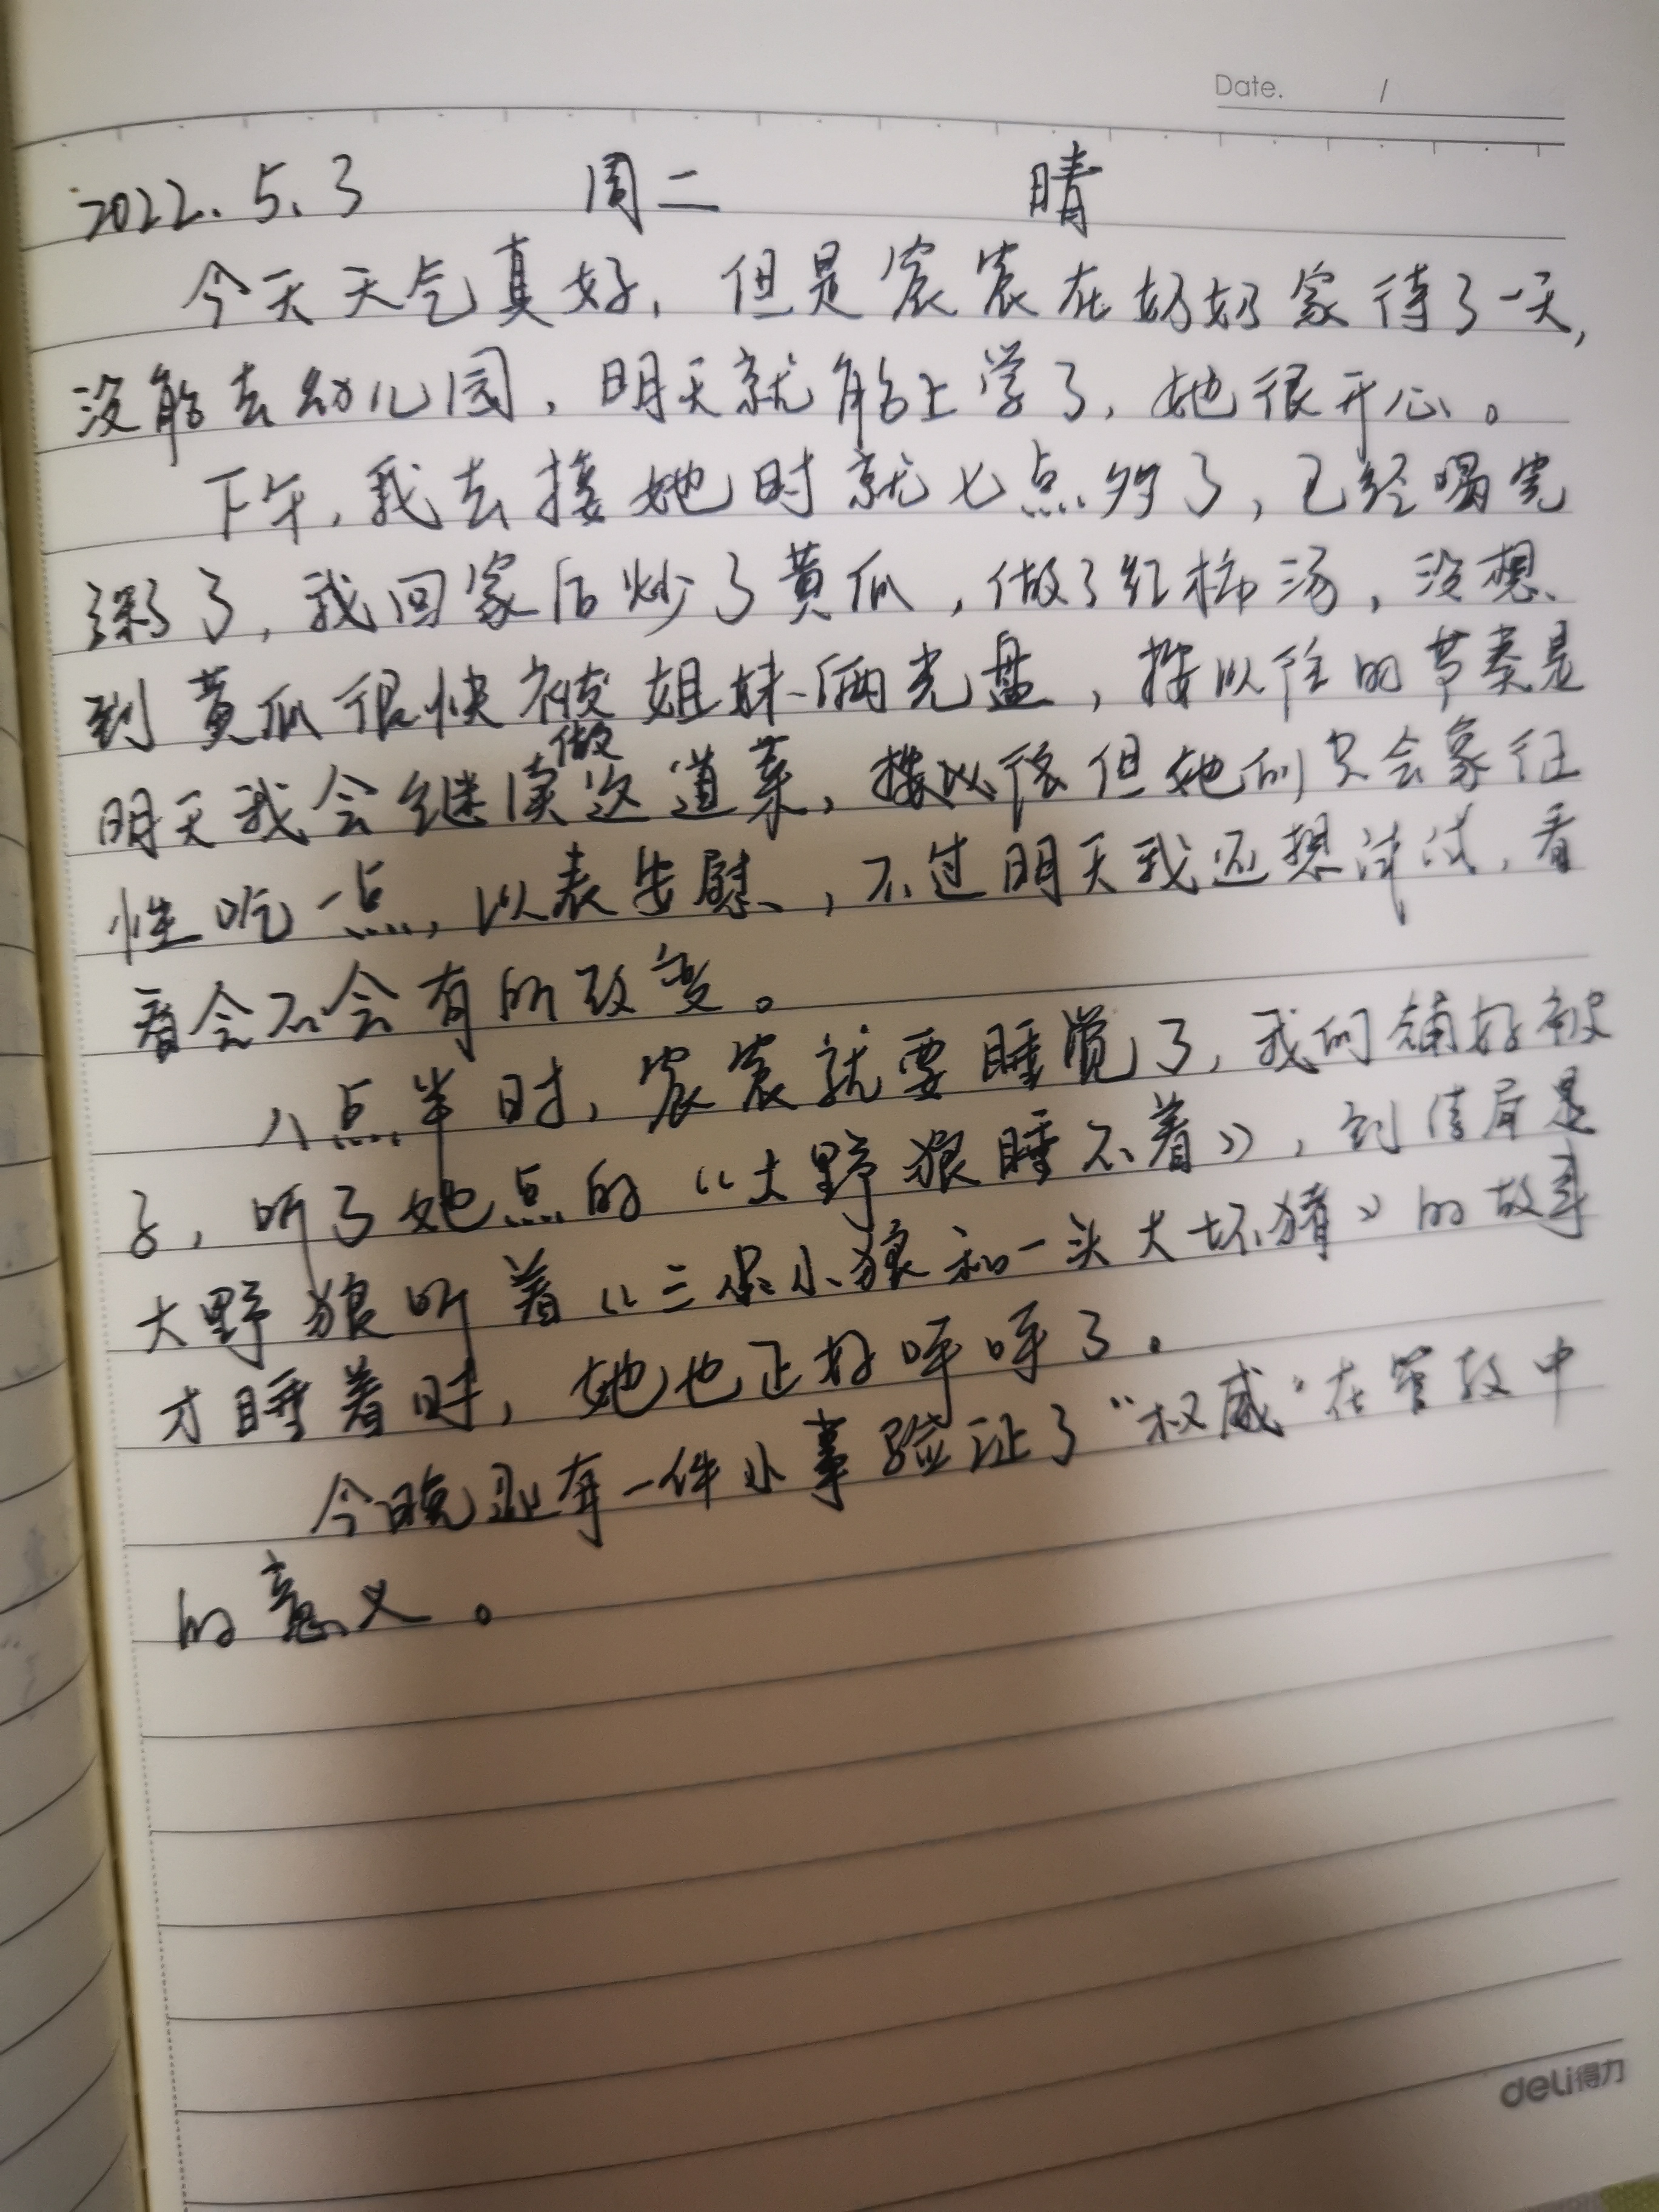 Date. /
2022.5.3 周二 晴
今天天气真好，但是宸宸在奶奶家待了一天，
没能去幼儿园，明天就能上学了，她很开心。
下午，我去接她时就七点多了，已经喝完
了，我回家后炒了黄瓜，做了红柿汤，没想
到黄瓜很快被姐妹俩光盘，按以往的节奏是
明天我会继续做这道菜，但她们只会象征
性吃一点，以表安慰，不过明天我还想试试，看
看会不会有所改变。
八点半时，宸宸就要睡觉了，我们铺好被
子，听了她点的《大野狼睡不着》，到结尾是
大野狼听着《三只小狼和一头大坏猪》的故事
才睡着时，她也正好呼呼了。
今晚还有一件小事验证了“权威”在管教中
的意义。
deli得力